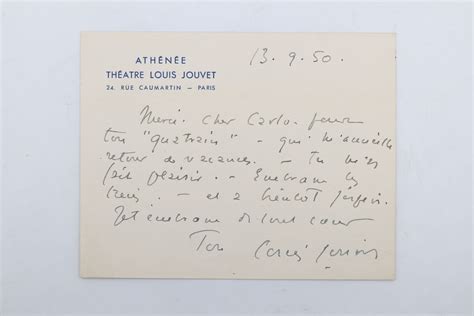 ATHÉNÉE
THÉATRE LOUIS JOUVET
24, RUE CAUMARTIN — PARIS
13. 9. 50.
Merci. cher Carlo. pour
ton "quatrain" - qui m'accueille
retour de vacances. - Tu m'as
fait plaisir. - Embrasse les
- et à bientôt j'espère.
Je t'embrasse de tout coeur
Ton Louis Jouvet